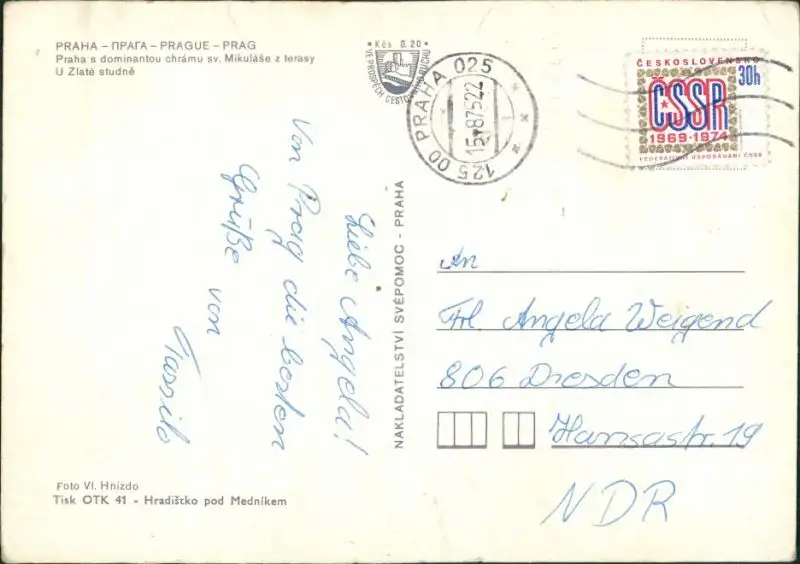 PRAHA – ПРАГА – PRAGUE – PRAG
Praha s dominantou chrámu sv. Mikuláše z terasy
U Zlaté studně
* Kčs 0.20 *
VE PROSPĚCH CESTOVNÍHO RUCHU
125 00 PRAHA 025
ČESKOSLOVENSKO
30h
ČSSR
1969-1974
FEDERATIVNÍ USPOŘÁDÁNÍ ČSSR
Liebe Angela!
Von Prag die besten
Grüße von
Tassilo
NAKLADATELSTVÍ SVÉPOMOC - PRAHA
An
Frl. Angela Weigend
806 Dresden
Hansastr. 19
NDR
Foto Vl. Hnízdo
Tisk OTK 41 - Hradištko pod Medníkem